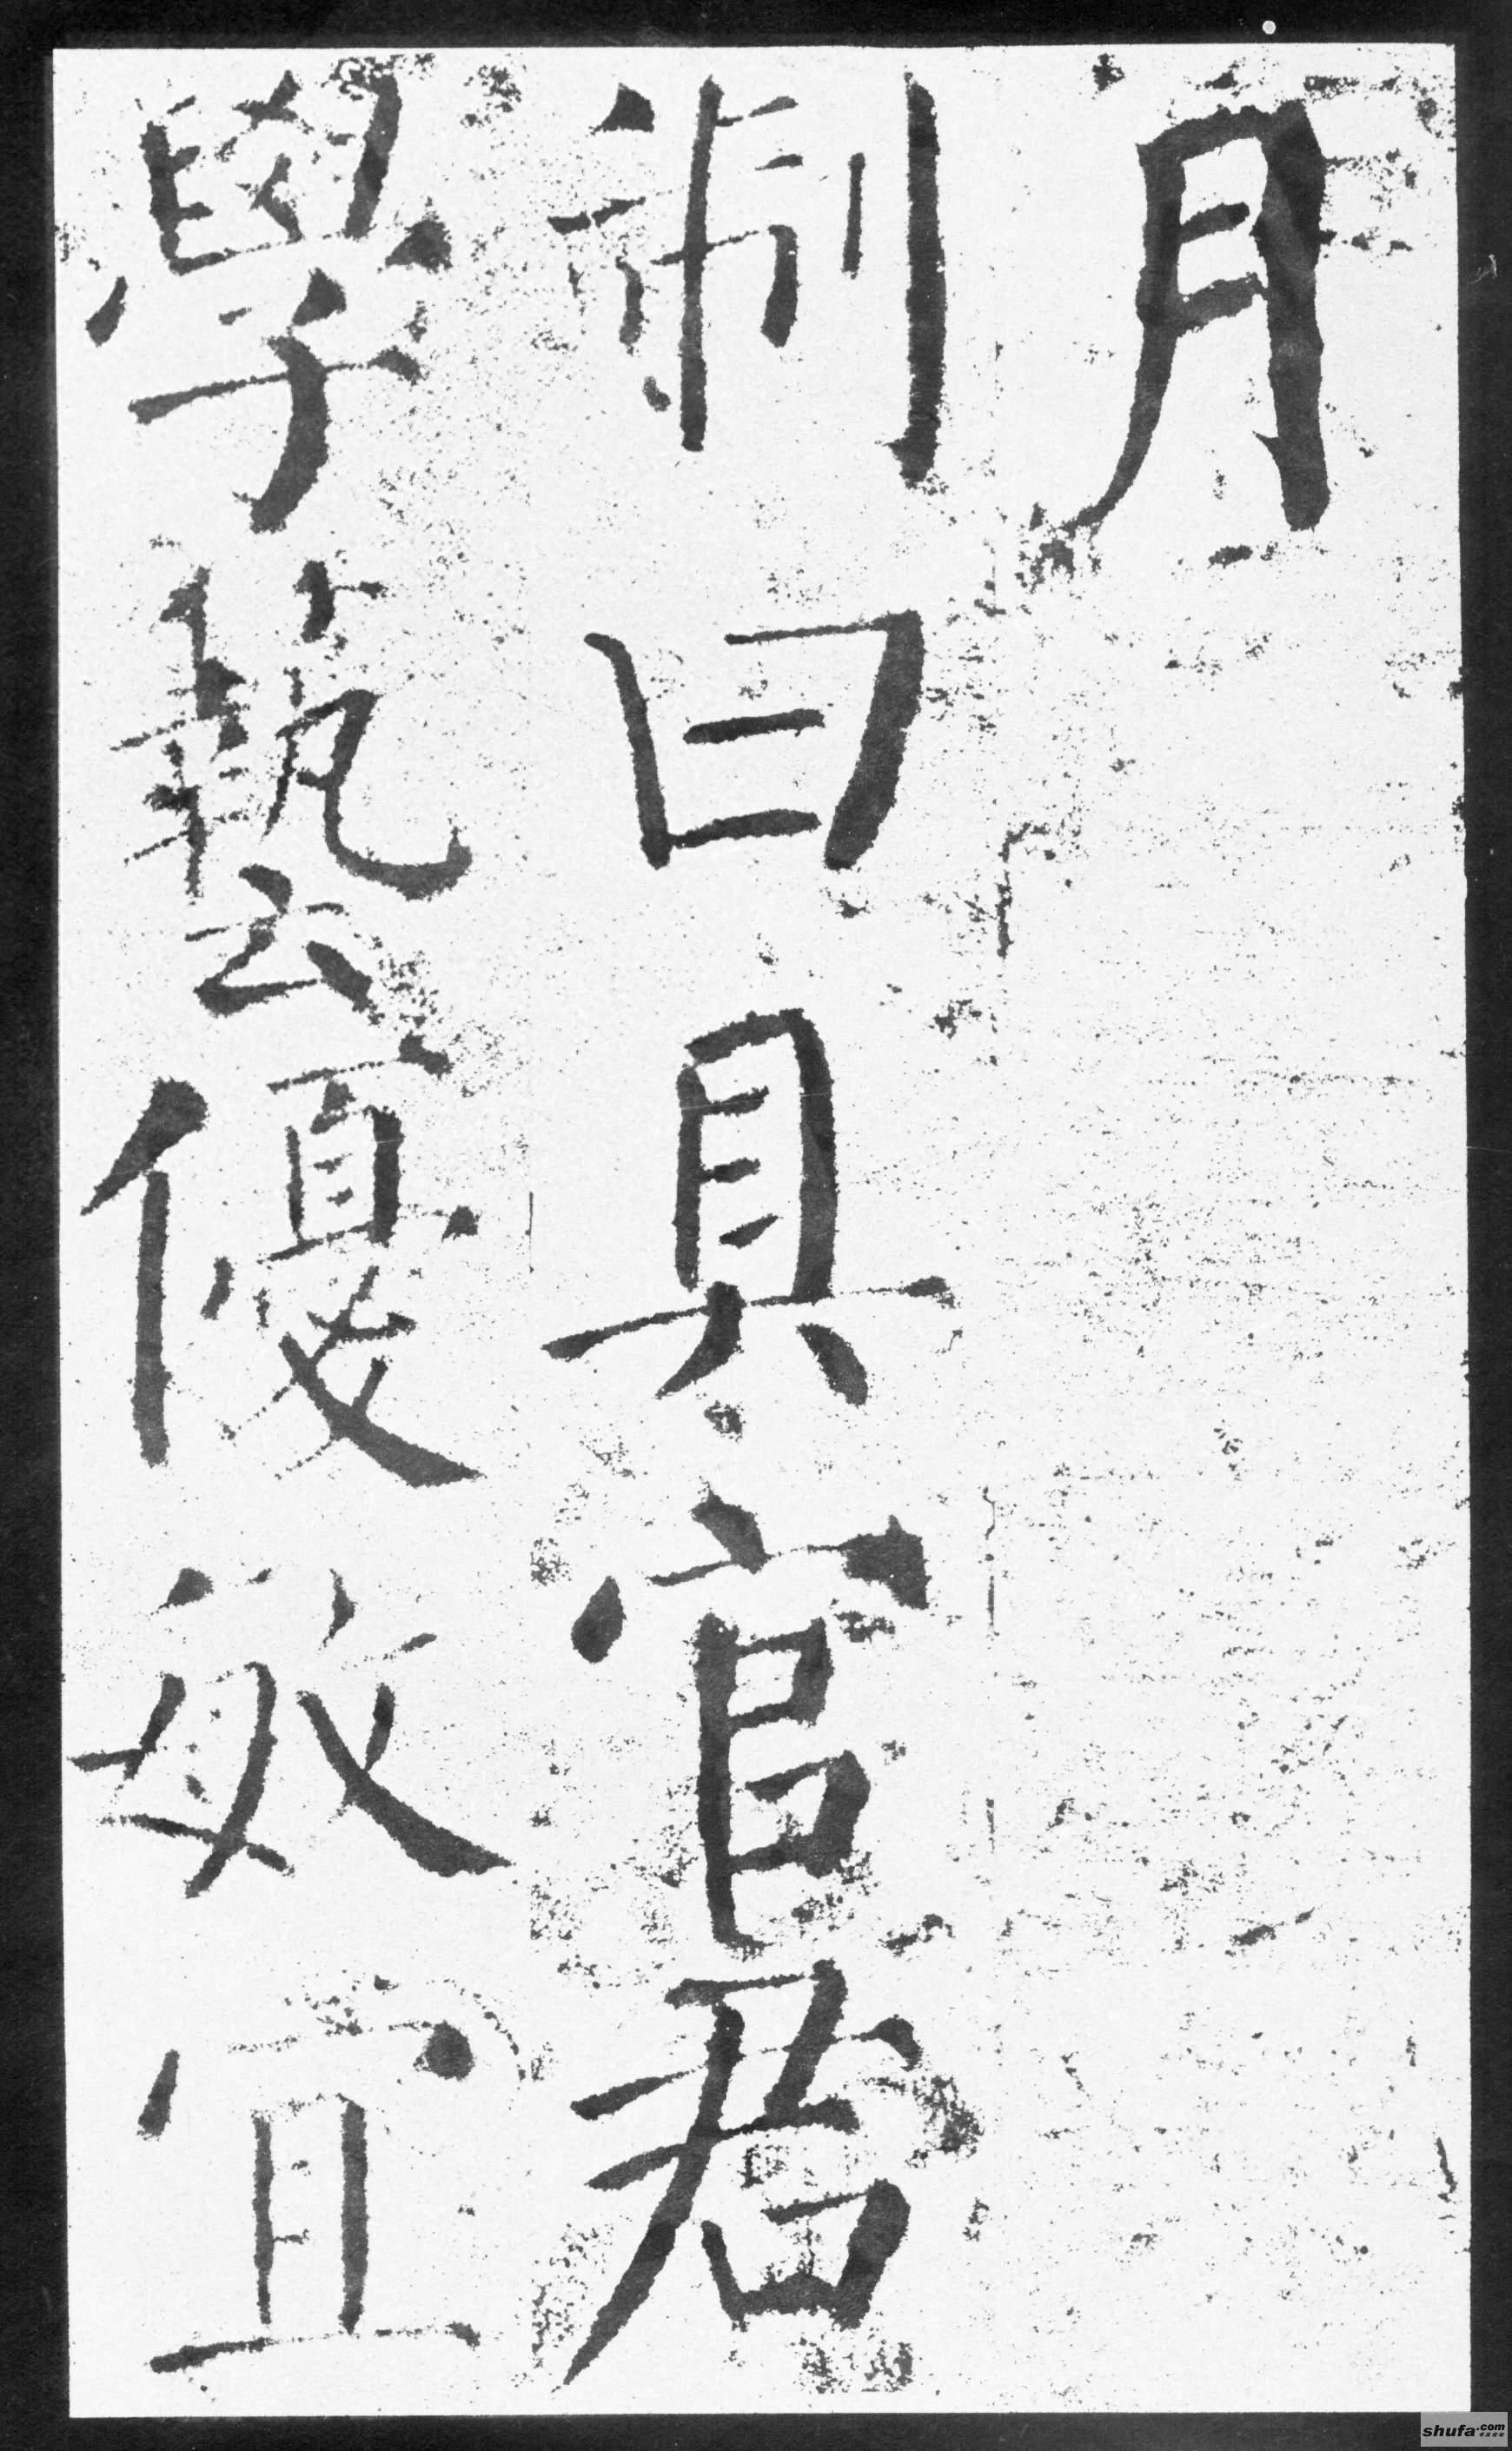 月
制曰具官君
學藝優敏宜
shufa.com